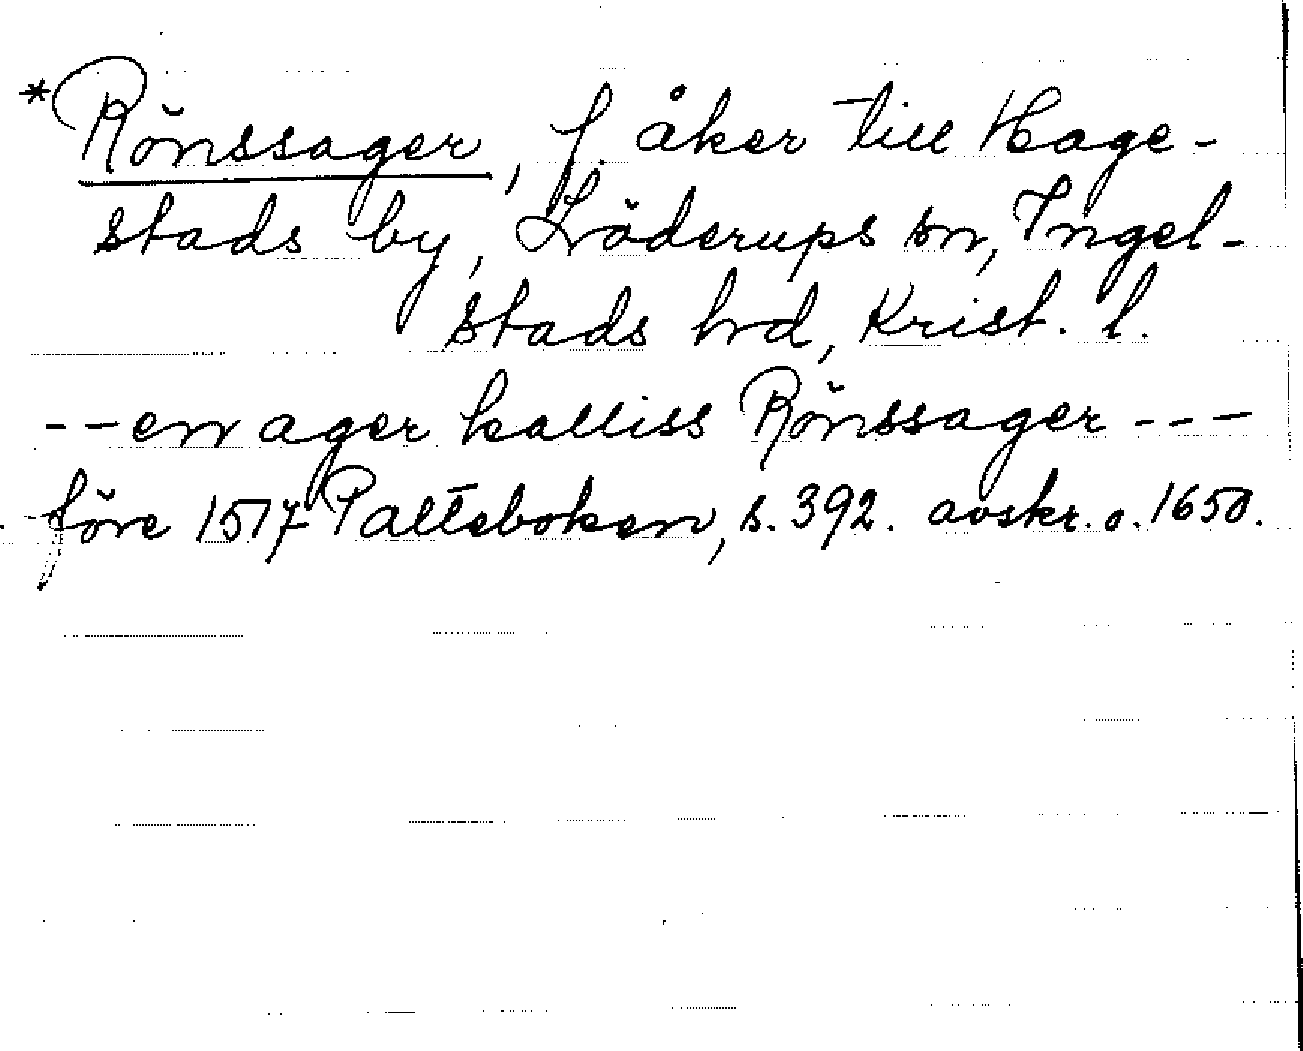 *Rönssager, f. åker till Hage-
stads by, Löderups sn, Ingel-
stads hd, Krist. l.
--en ager kalliss Rönssager ---
före 1517 Palteboken, s. 392. avskr. o. 1650.